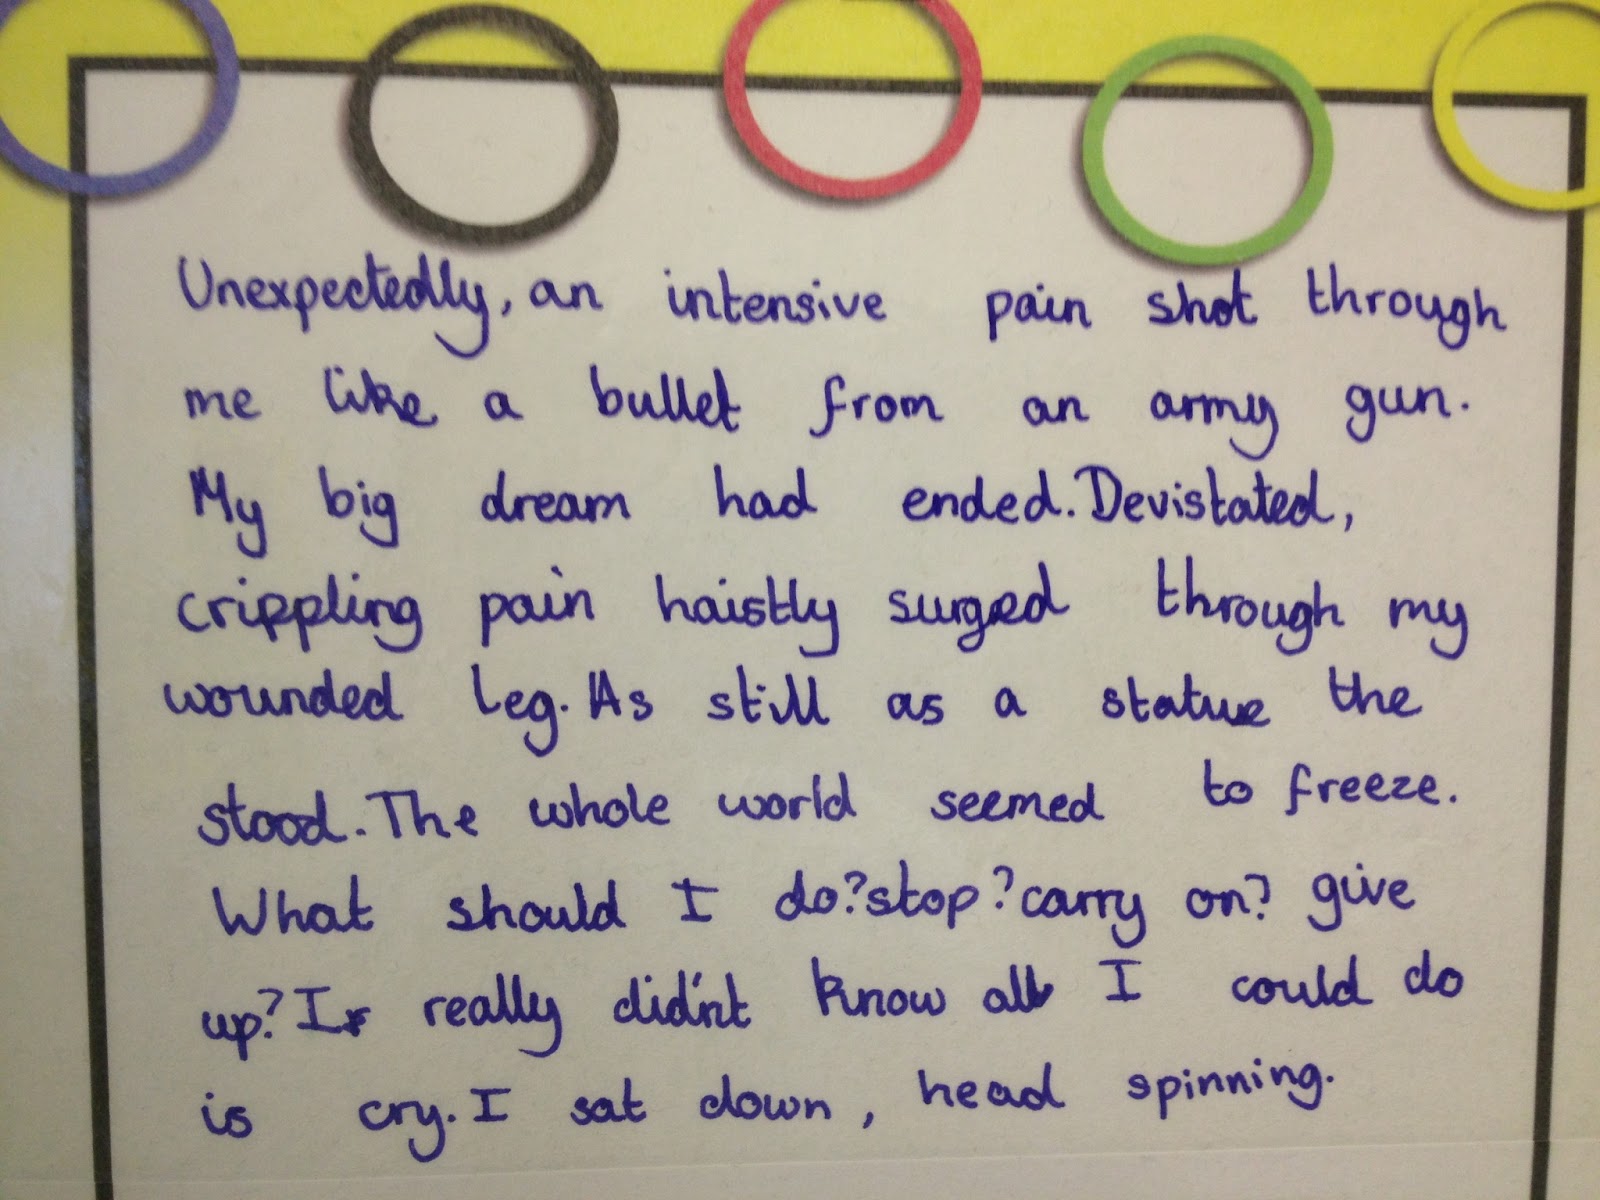 Unexpectedly, an intensive pain shot through
me like a bullet from an army gun.
My big dream had ended. Devistated,
crippling pain haistly surged through my
wounded leg. As still as a statue the
stood. The whole world seemed to freeze.
What should I do? stop? carry on? give
up? I really did'nt know all I could do
is cry. I sat down, head spinning.